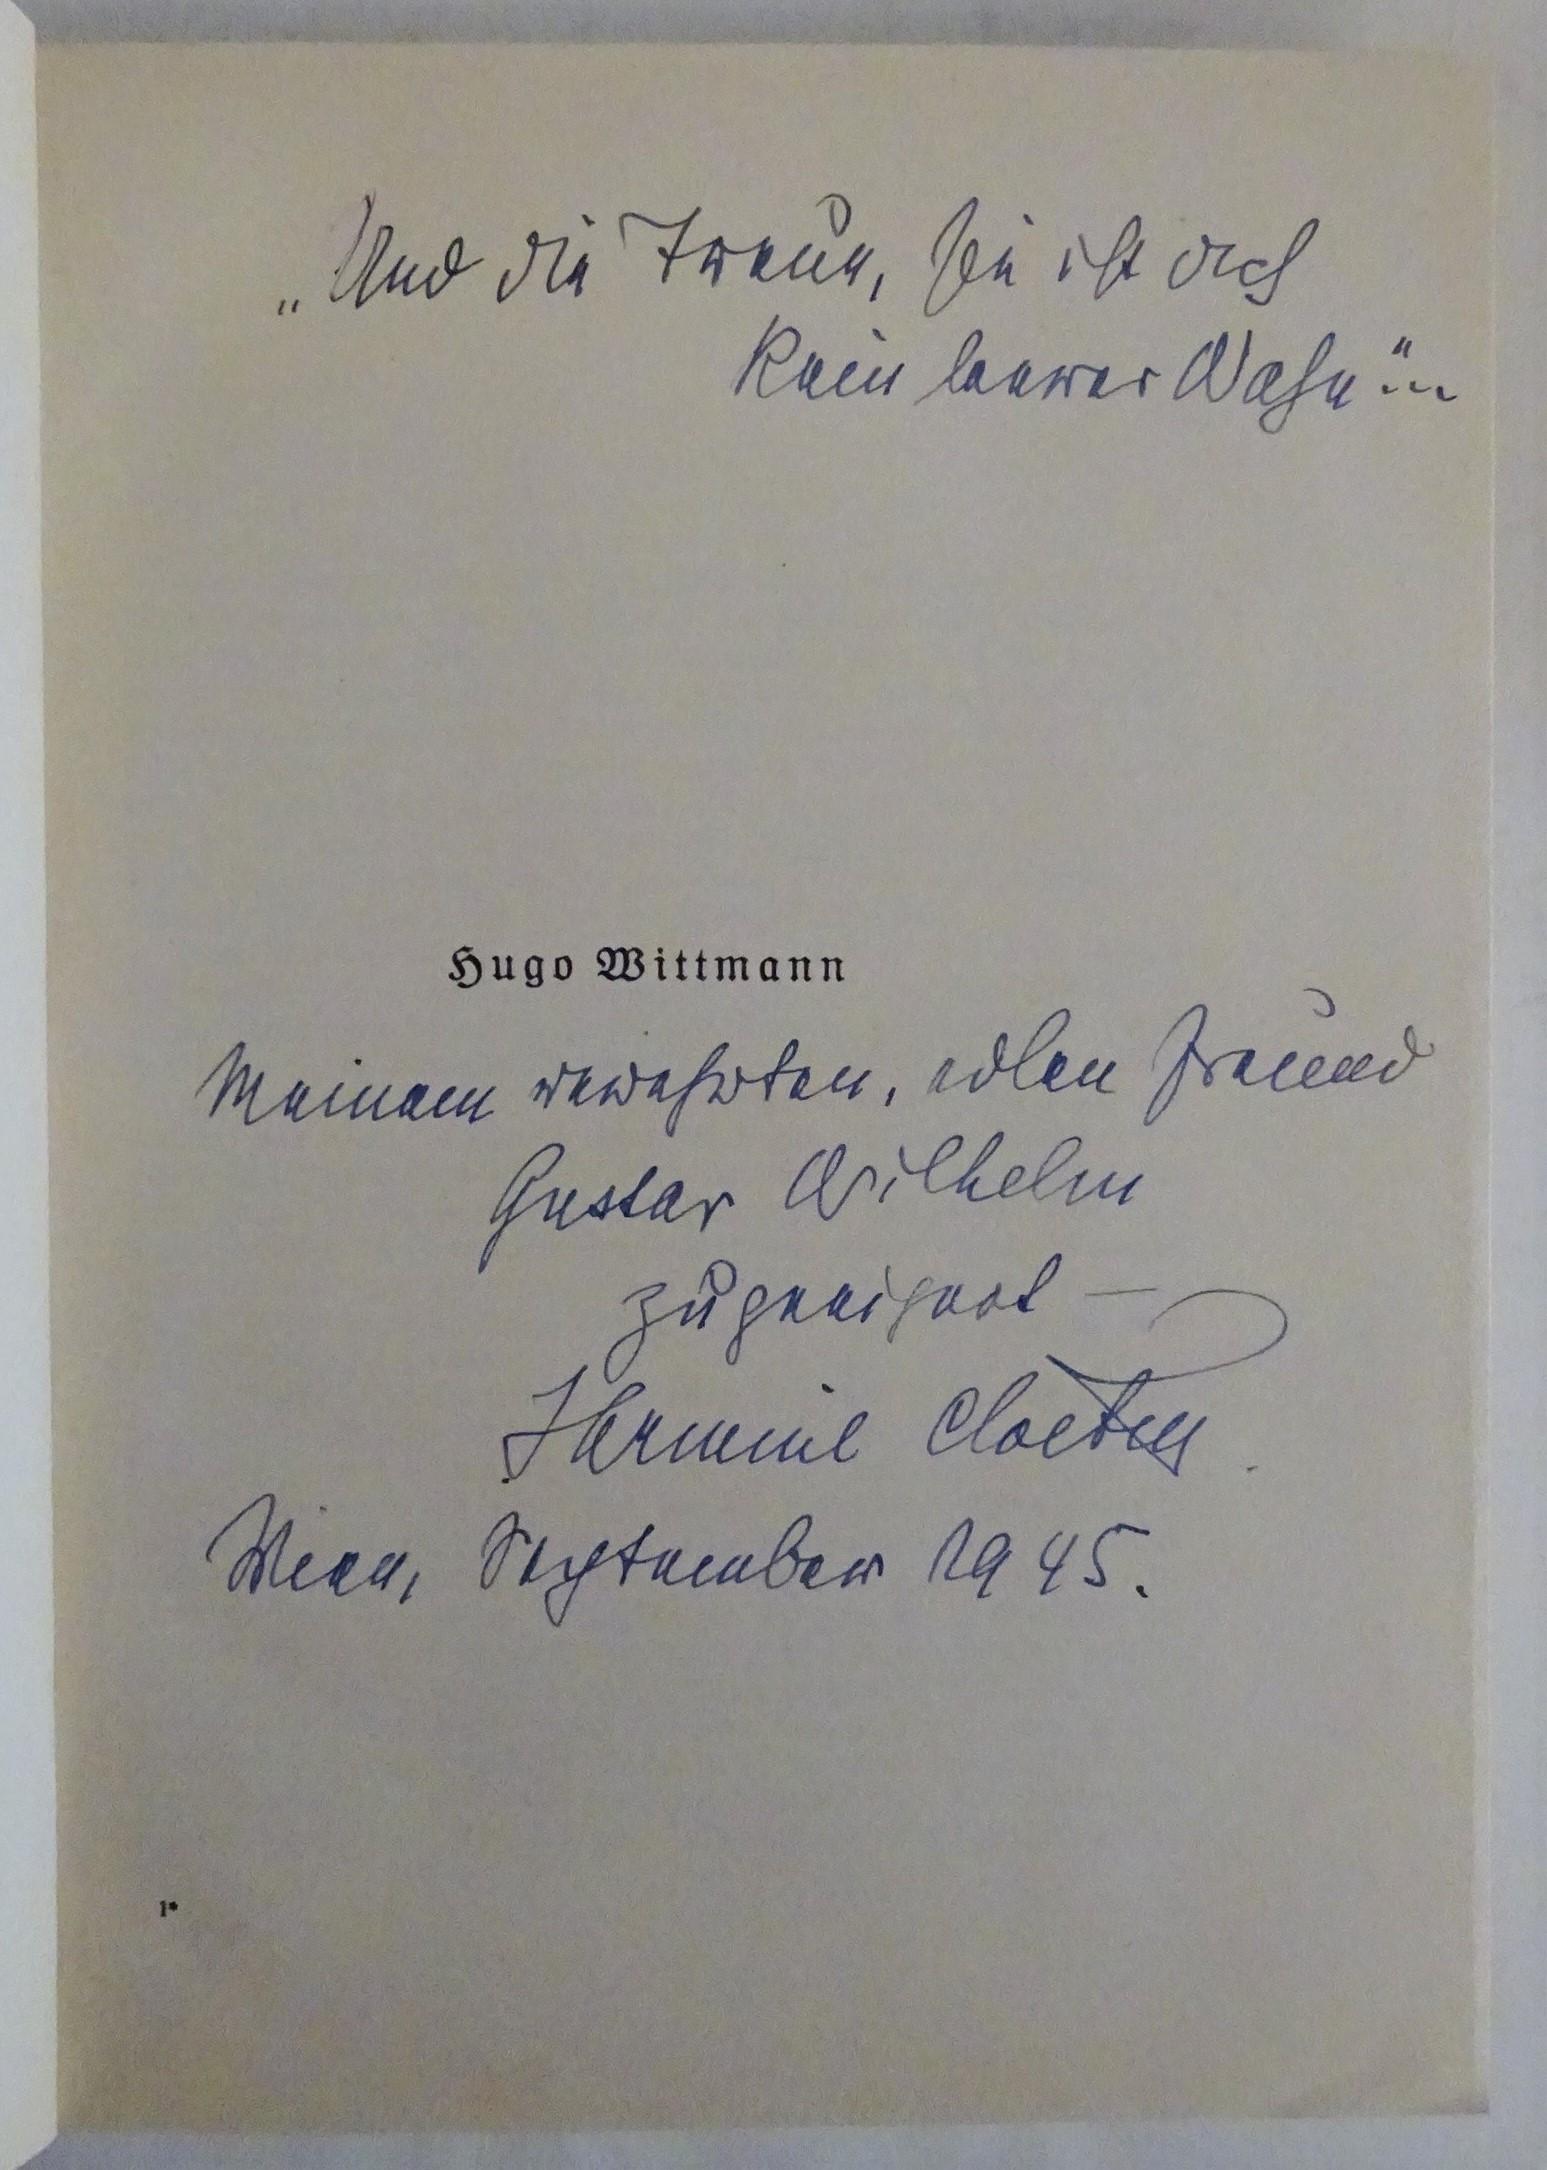 „Und die Treue, sie ist doch
kein leerer Wahn“...
Hugo Wittmann
Meinem verehrten, edlen Freund
Gustav Wilhelm
zugeeignet —
Hermine Cloeter.
Wien, September 1945.
1*